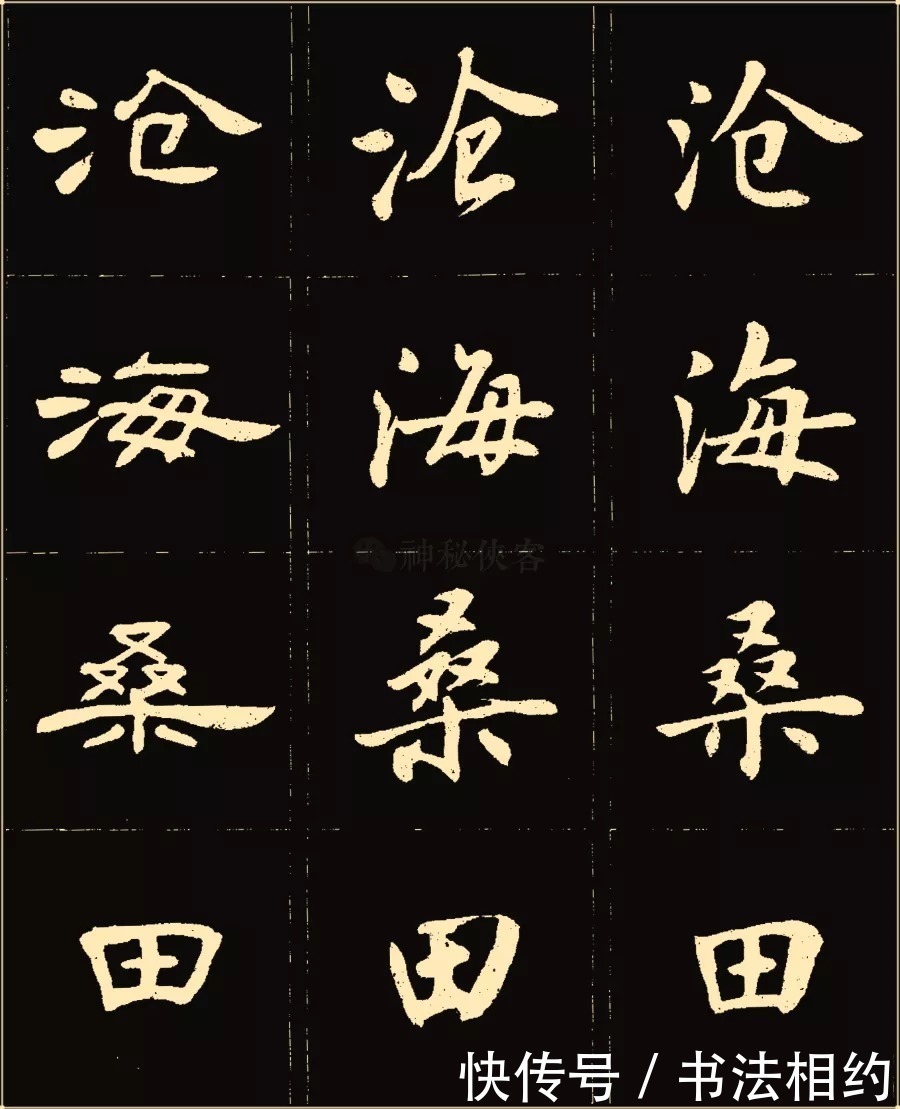 沧 沧 沧
海 海 海
神秘侠客
桑 桑 桑
田 田 田
快传号 / 书法相约